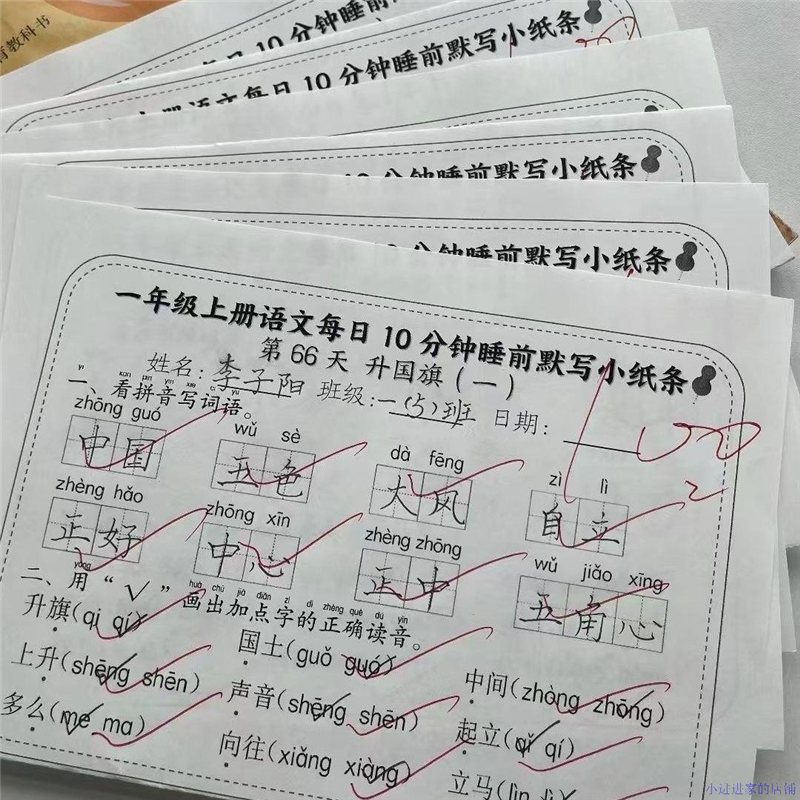 育教科书
每日10分钟睡前默写小纸条
上册语文每日10分钟睡前默写小纸条
10分钟睡前默写小纸条
10分钟睡前默写小纸条
一年级上册语文每日10分钟睡前默写小纸条
第66天 升国旗(一)
姓名:李子阳 班级:一(5)班 日期:
100
一、看拼音写词语。
zhōng guó wǔ sè dà fēng zì lì
中国 五色 大风 自立
2
zhèng hǎo zhōng xīn zhèng zhōng wǔ jiǎo xīng
正好 中心 正中 五角心
二、用“√”画出加点字的正确读音。
升旗(qi qí) 国土(guǒ guó) 中间(zhòng zhōng)
上升(shēng shēn) 声音(shēng shēn) 起立(qǐ qí)
多么(me ma) 向往(xiǎng xiàng) 立马(lìn lì)
小过进家的店铺